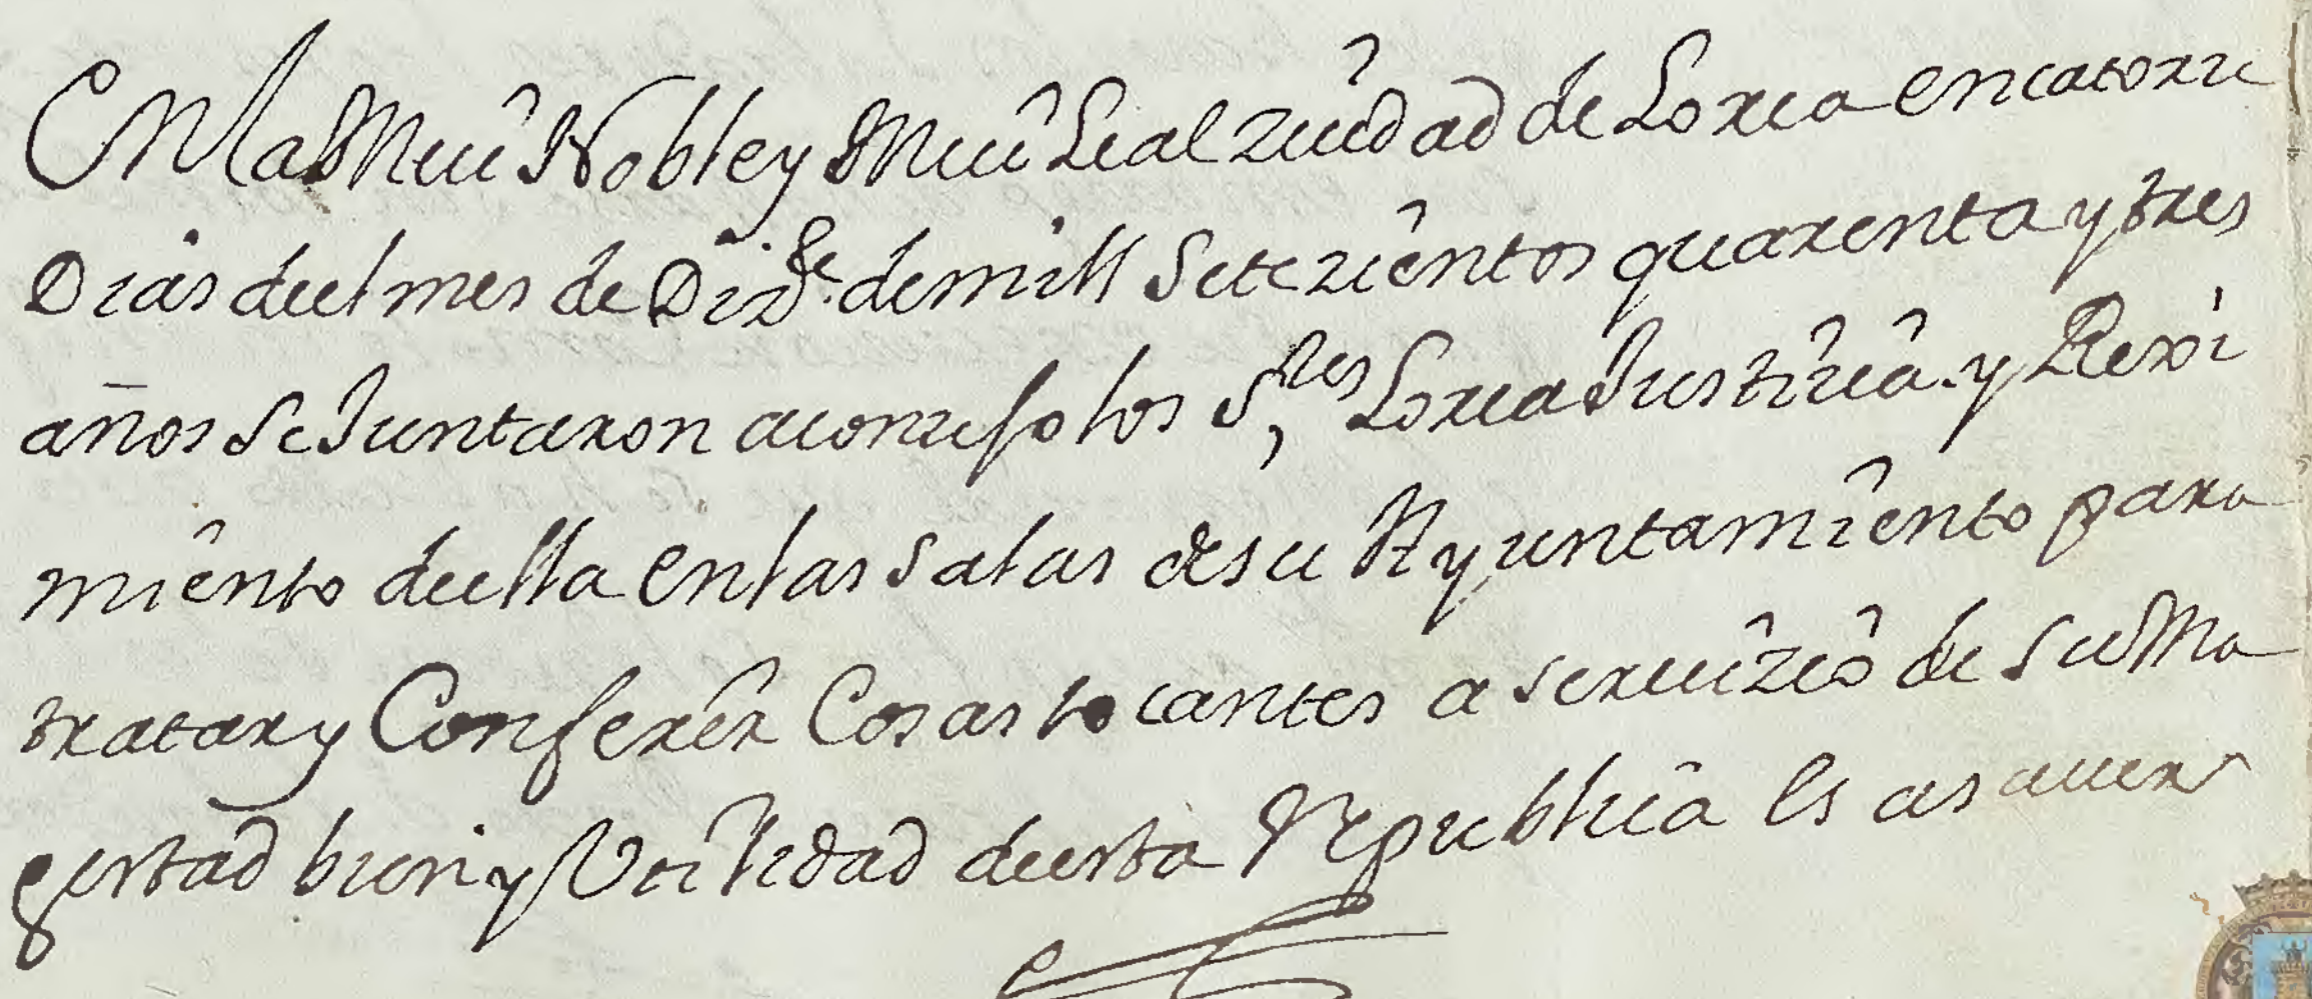 En la Mui Noble y Mui Leal Ziudad de Lorca en catorze
Dias deel mes de Diz.re de mill Setezientos quarenta y tres
años Se Juntaron a conzejo los S,res Lorca Justizia y Rexi
miento deella en las salas de su Ayuntamiento para
tratar y Conferir Cosas tocantes a seruizio de su Ma
gestad bien y Utilidad deesta Republica Es asauer